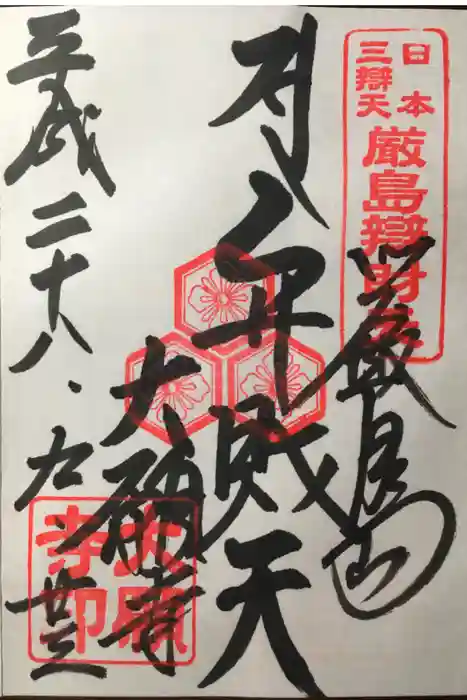 日本
三辯天
厳島辯財天
厳島山
弁財天
大願寺
平成二十八.九.廿
大願
寺印